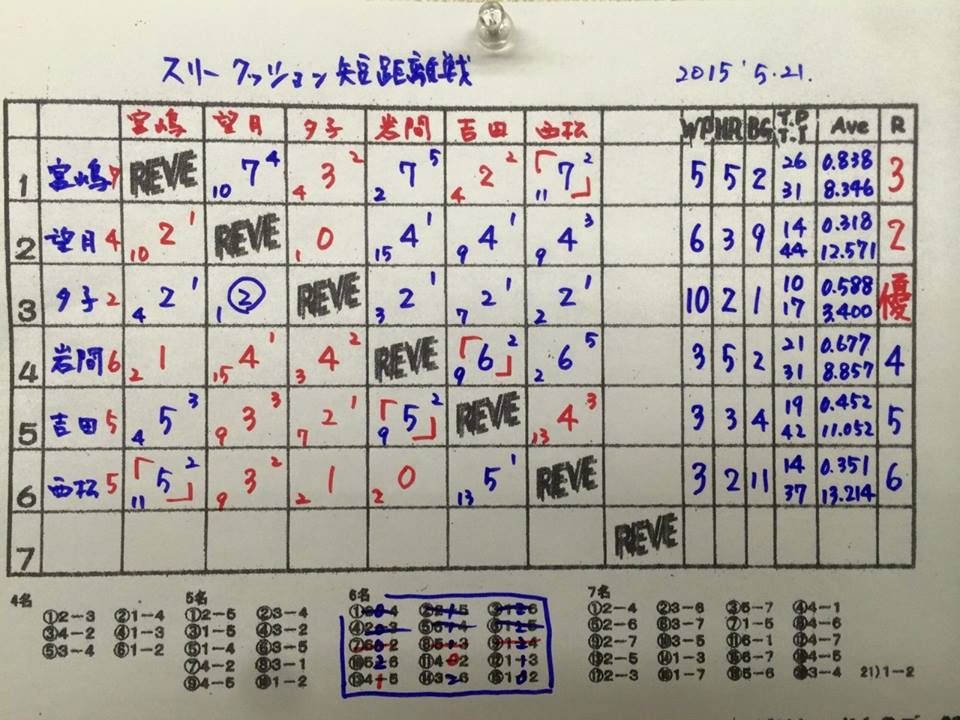 スリークッション短距離戦 2015'5.21.
宮嶋 望月 夕子 岩間 吉田 西松 WP HR BG T.P T.I Ave R
1 宮嶋 7 REVE 10 7 4 4 3 2 2 7 5 4 2 2 「 11 7 2 」 5 5 2 26 31 0.838 8.346 3
2 望月 4 10 2 1 REVE 1 0 15 4 1 9 4 1 9 4 3 6 3 9 14 44 0.318 12.571 2
3 夕子 2 4 2 1 1 ② REVE 3 2 1 7 2 1 2 2 1 10 2 1 10 17 0.588 3.400 優
4 岩間 6 2 1 15 4 1 3 4 2 REVE 「 9 6 2 」 2 6 5 3 5 2 21 31 0.677 8.857 4
5 吉田 5 4 5 3 9 3 3 7 2 1 「 9 5 2 」 REVE 13 4 3 3 3 4 19 42 0.452 11.052 5
6 西松 5 「 11 5 2 」 9 3 2 2 1 2 0 13 5 1 REVE 3 2 11 14 37 0.351 13.214 6
7 REVE
4名
①2-3 ②1-4
③4-2 ④1-3
⑤3-4 ⑥1-2
5名
①2-5 ②3-4
③1-5 ④3-2
⑤1-4 ⑥3-5
⑦4-2 ⑧3-1
⑨4-5 ⑩1-2
6名
7名
①2-4 ②3-6 ③5-7 ④4-1
⑤2-6 ⑥3-7 ⑦1-5 ⑧4-6
⑨2-7 ⑩3-5 ⑪6-1 ⑫4-7
⑬2-5 ⑭1-3 ⑮6-7 ⑯4-5
⑰2-3 ⑱1-7 ⑲5-6 ⑳3-4 21)1-2